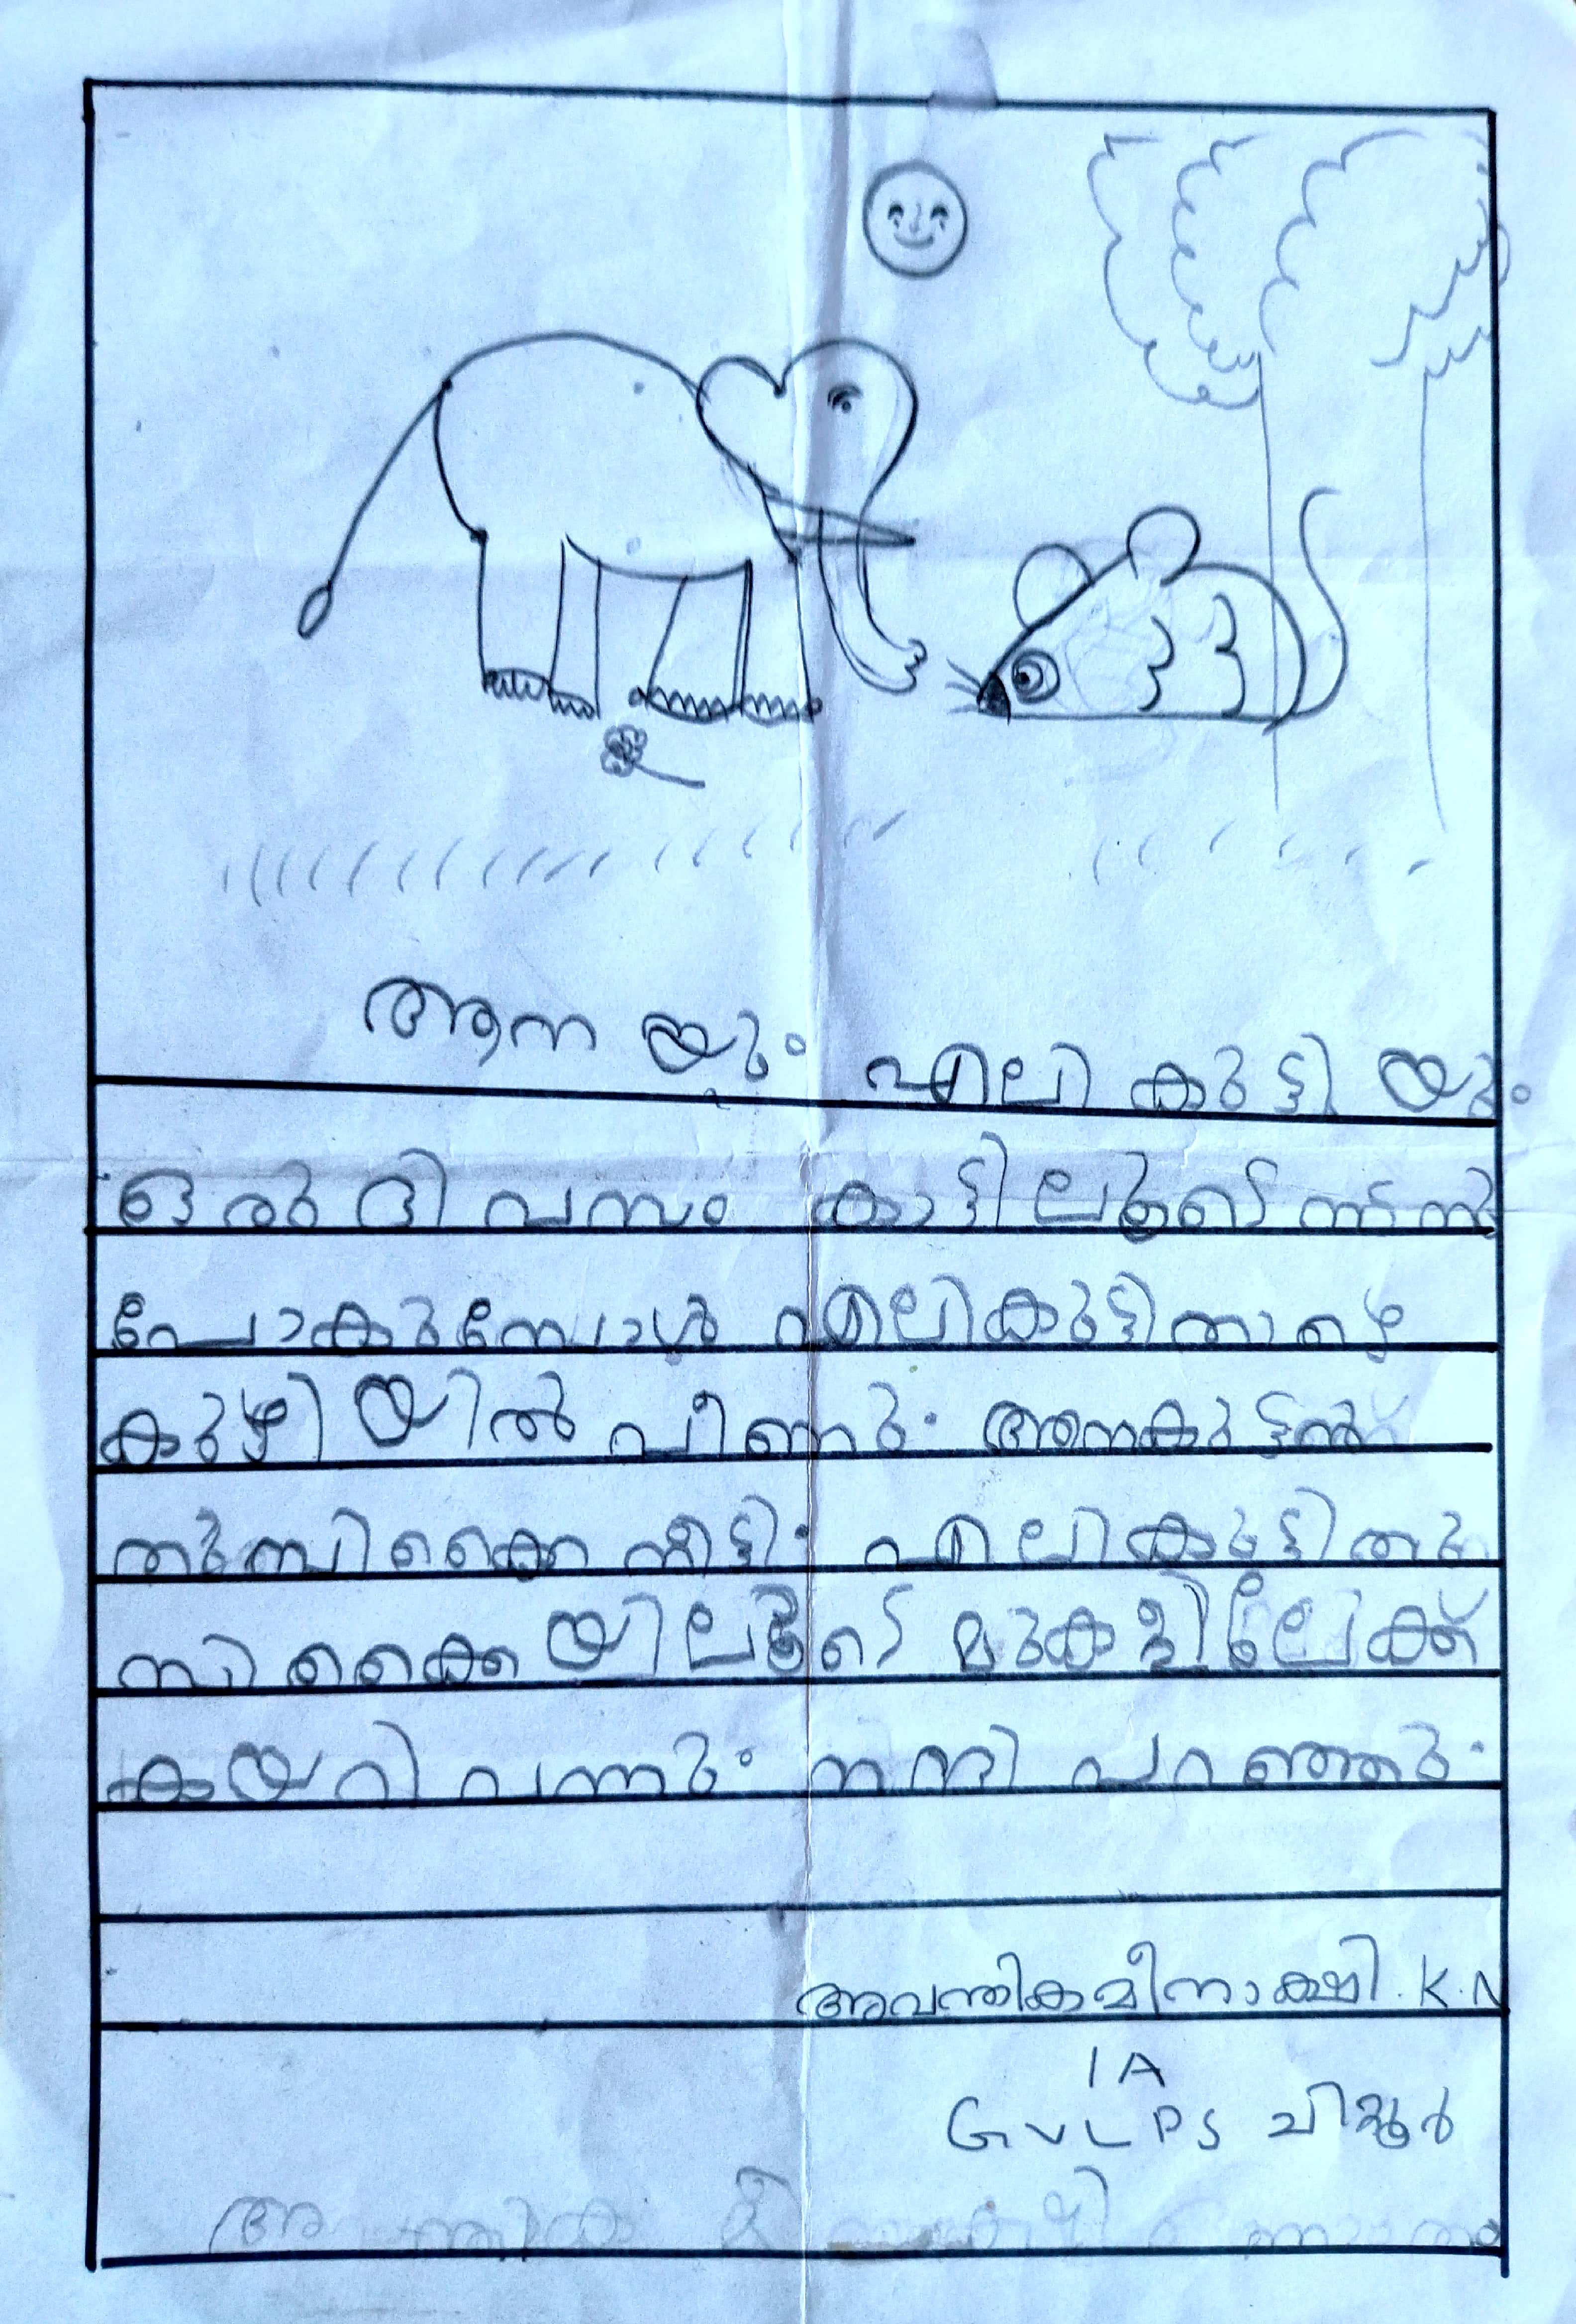 ആന യും എലി കുട്ടി യും
ഒരു ദി വസം കാട്ടിലൂടെ നടന്നു
പോകുമ്പോൾ എലികുട്ടി താഴെ
കുഴി യിൽ വീണു. ആനകുട്ടൻ
തുമ്പിക്കൈ നീട്ടി. എലികുട്ടി തു
മ്പിക്കൈ യിലൂടെ മുകളിലേക്ക്
കയറി വന്നു. നന്ദി പറഞ്ഞു.
അവന്തിക മീനാക്ഷി. K.N
1 A
GVLPS ചിറ്റൂർ